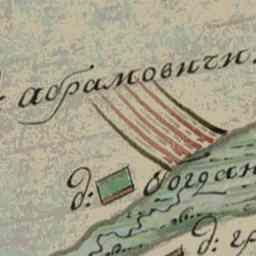 абрамовичи.
д: богдан
д: гр